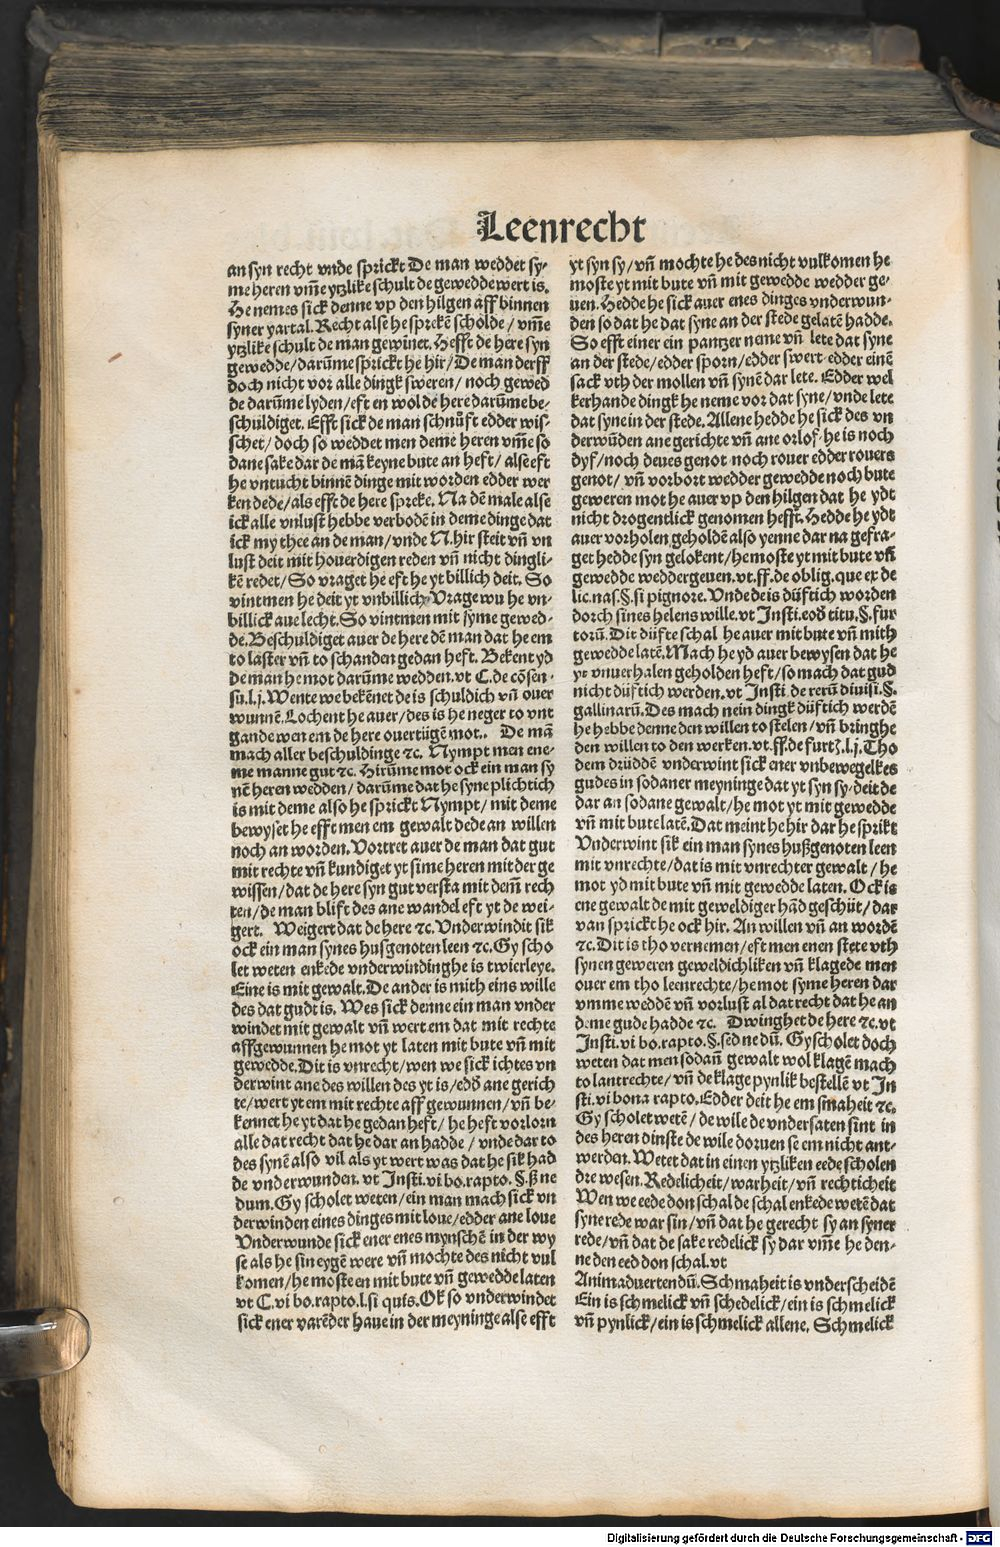 Leenrecht
an syn recht vnde sprickt De man weddet sy-
me heren vm̄e ytzlike schult de gewedde wert is.
He nemes sick denne vp den hilgen aff binnen
syner yartal. Recht alse he sprekē scholde / vm̄e
ytzlike schult de man gewinet. Hefft de here syn
gewedde / darūme sprickt he hir / De man derff
doch nicht vor alle dingk sweren / noch gewed
de darūme lyden / eft en wol de here darūme be-
schuldiget. Efft sick de man schnuͤft edder wis-
schet / doch so weddet men deme heren vm̄e so
dane sake dar de mā keyne bute an heft / alse eft
he vntucht binnē dinge mit worden edder wer
ken dede / als efft de here spreke. Na dē male alse
ick alle vnlust hebbe verbodē in deme dinge dat
ick my thee an de man / vnde N. hir steit vn̄ vn
lust deit mit houerdigen reden vn̄ nicht dingli-
kē redet / So vraget he eft he yt billich deit. So
vintmen he deit yt vnbillich. Vrage wu he vn-
billick aue lecht. So vintmen mit syme gewed-
de. Beschuldiget auer de here dē man dat he em
to laster vn̄ to schanden gedan heft. Bekent yd
de man he mot darūme wedden. vt C. de cōsen-
su. l. j. Wente we bekēnet de is schuldich vn̄ ouer
wunnē. Lochent he auer / des is he neger to vnt
gande wen em de here ouertügē mot.. De mā
mach aller beschuldinge ⁊c. Nympt men ene-
me manne gut ⁊c. Hirūme mot ock ein man sy
nē heren wedden / darūme dat he syne plichtich
is mit deme also he sprickt Nympt / mit deme
bewyset he efft men em gewalt dede an willen
noch an worden. Vortret auer de man dat gut
mit rechte vn̄ kundiget yt sime heren mit der ge
wissen / dat de here syn gut versta mit dem̄ rech
ten / de man blift des ane wandel eft yt de wei-
gert. Weigert dat de here ⁊c. Vnderwindit sik
ock ein man synes husgenoten leen ⁊c. Gy scho
let weten enkede vnderwindinghe is twierleye.
Eine is mit gewalt. De ander is mith eins wille
des dat gudt is. Wes sick denne ein man vnder
windet mit gewalt vn̄ wert em dat mit rechte
affgewunnen he mot yt laten mit bute vn̄ mit
gewedde. Dit is vnrecht / wen we sick ichtes vn
derwint ane des willen des yt is / edd' ane gerich
te / wert yt em mit rechte aff gewunnen / vn̄ be-
kennet he yt dat he gedan heft / he heft vorlorn
alle dat recht dat he dar an hadde / vnde dar to
des synē also vil als yt wert was dat he sik had
de vnderwunden. vt Insti. vi bo. rapto. §. s̄ ne
dum. Gy scholet weten / ein man mach sick vn
derwinden eines dinges mit loue / edder ane loue
Vnderwunde sick ener enes mynschē in der wy
se als he sin eygē were vn̄ mochte des nicht vul
komen / he moste en mit bute vn̄ gewedde laten
vt C. vi bo. rapto. l. si quis. Ok so vnderwindet
sick ener varēder haue in der meyninge alse efft
yt syn sy / vn̄ mochte he des nicht vulkomen he
moste yt mit bute vn̄ mit gewedde wedder ge-
uen. Hedde he sick auer enes dinges vnderwun-
den so dat he dat syne an der stede gelatē hadde.
So efft einer ein pantzer neme vn̄ lete dat syne
an der stede / edder sporn / edder swert edder einē
sack vth der mollen vn̄ synē dar lete. Edder wel
kerhande dingk he neme vor dat syne / vnde lete
dat syne in der stede. Allene hedde he sick des vn
derwūden ane gerichte vn̄ ane orlof. he is noch
dyf / noch deues genot noch rouer edder rouers
genot / vn̄ vorbort wedder gewedde noch bute
geweren mot he auer vp den hilgen dat he ydt
nicht drogentlick genomen hefft. Hedde he ydt
auer vorholen geholdē also yenne dar na gefra-
get hedde syn gelokent / he moste yt mit bute vn̄
gewedde weddergeuen. vt. ff. de oblig. que ex de
lic. nas. §. si pignore. Vnde de is düftich worden
dorch sines helens wille. vt Insti. eod' titu. §. fur
torū. Dit düfte schal he auer mit bute vn̄ mith
gewedde latē. Mach he yd auer bewysen dat he
yt vnuerhalen geholden heft / so mach dat gud
nicht düftich werden. vt Insti. de rerū diuisi. §.
gallinarū. Des mach nein dingk düftich werdē
he hebbe denne den willen to stelen / vn̄ bringhe
den willen to den werken. vt. ff. de furtz. l. j. Tho
dem drüddē vnderwint sick ener vnbewegelkes
gudes in sodaner meyninge dat yt syn sy / deit de
dar an sodane gewalt / he mot yt mit gewedde
vn̄ mit bute latē. Dat meint he hir dar he sprikt
Vnderwint sik ein man synes hußgenoten leen
mit vnrechte / dat is mit vnrechter gewalt / he
mot yd mit bute vn̄ mit gewedde laten. Ock is
ene gewalt de mit geweldiger hād geschüt / dar
van sprickt he ock hir. An willen vn̄ an wordē
⁊c. Dit is tho vernemen / eft men enen stete vth
synen geweren geweldichliken vn̄ klagede men
ouer em tho leenrechte / he mot syme heren dar
vmme weddē vn̄ vorlust al dat recht dat he an
deme gude hadde ⁊c. Dwinghet de here ⁊c. vt
Insti. vi bo. rapto. §. sed ne dū. Gy scholet doch
weten dat men sodan̄ gewalt wol klagē mach
to lantrechte / vn̄ de klage pynlik bestellē vt In
sti. vi bona rapto. Edder deit he em smaheit ⁊c.
Gy scholet wetē / de wile de vndersaten sint in
des heren dinste de wile doruen se em nicht ant-
werden. Wetet dat in einen ytzliken eede scholen
dre wesen. Redelicheit / warheit / vn̄ rechticheit
Wen we eede don schal de schal enkede wetē dat
syne rede war sin / vn̄ dat he gerecht sy an syner
rede / vn̄ dat de sake redelick sy dar vm̄e he den-
ne den eed don schal. vt
Animaduertendū. Schmaheit is vnderscheidē
Ein is schmelick vn̄ schedelick / ein is schmelick
vn̄ pynlick / ein is schmelick allene. Schmelick
Digitalisierung gefördert durch die Deutsche Forschungsgemeinschaft - DFG